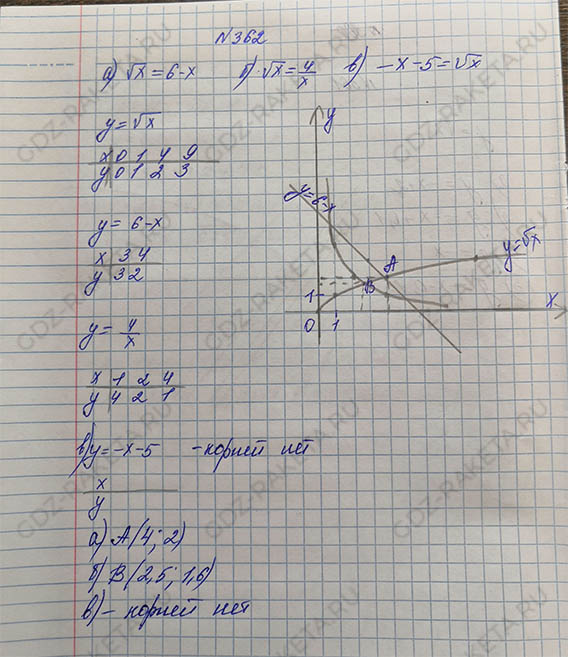 №362
а) √x = 6-x б) √x = 4/x в) -x-5=√x
y = √x
x 0 1 4 9
y 0 1 2 3
y = 6-x
x 3 4
y 3 2
y = 4/x
x 1 2 4
y 4 2 1
в) y = -x-5 - корней нет
x
y
а) A (4; 2)
б) B (2,5; 1,6)
в) - корней нет
y
y=6-x
y=√x
A
B
1
0 1 x
GDZ-RAKETA.RU